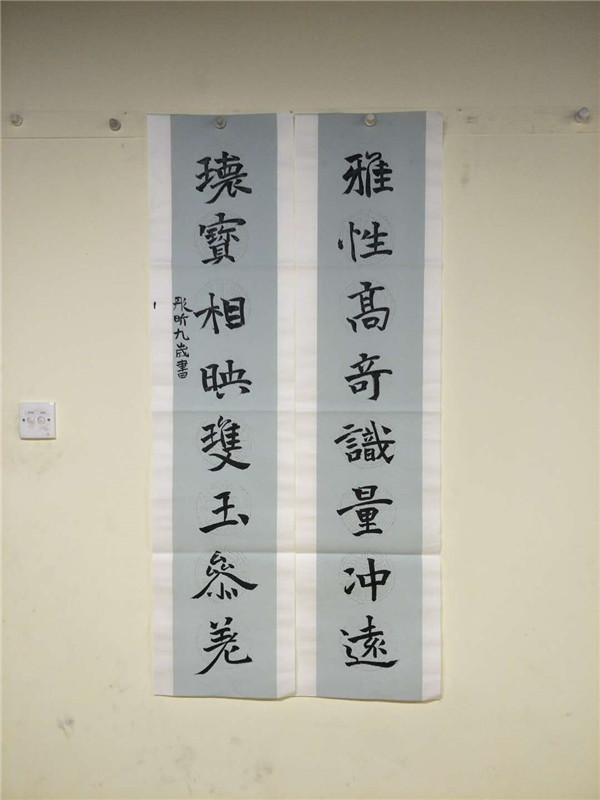 雅性高奇識量冲遠
瓌寶相映雙玉參差
彤昕九歲書